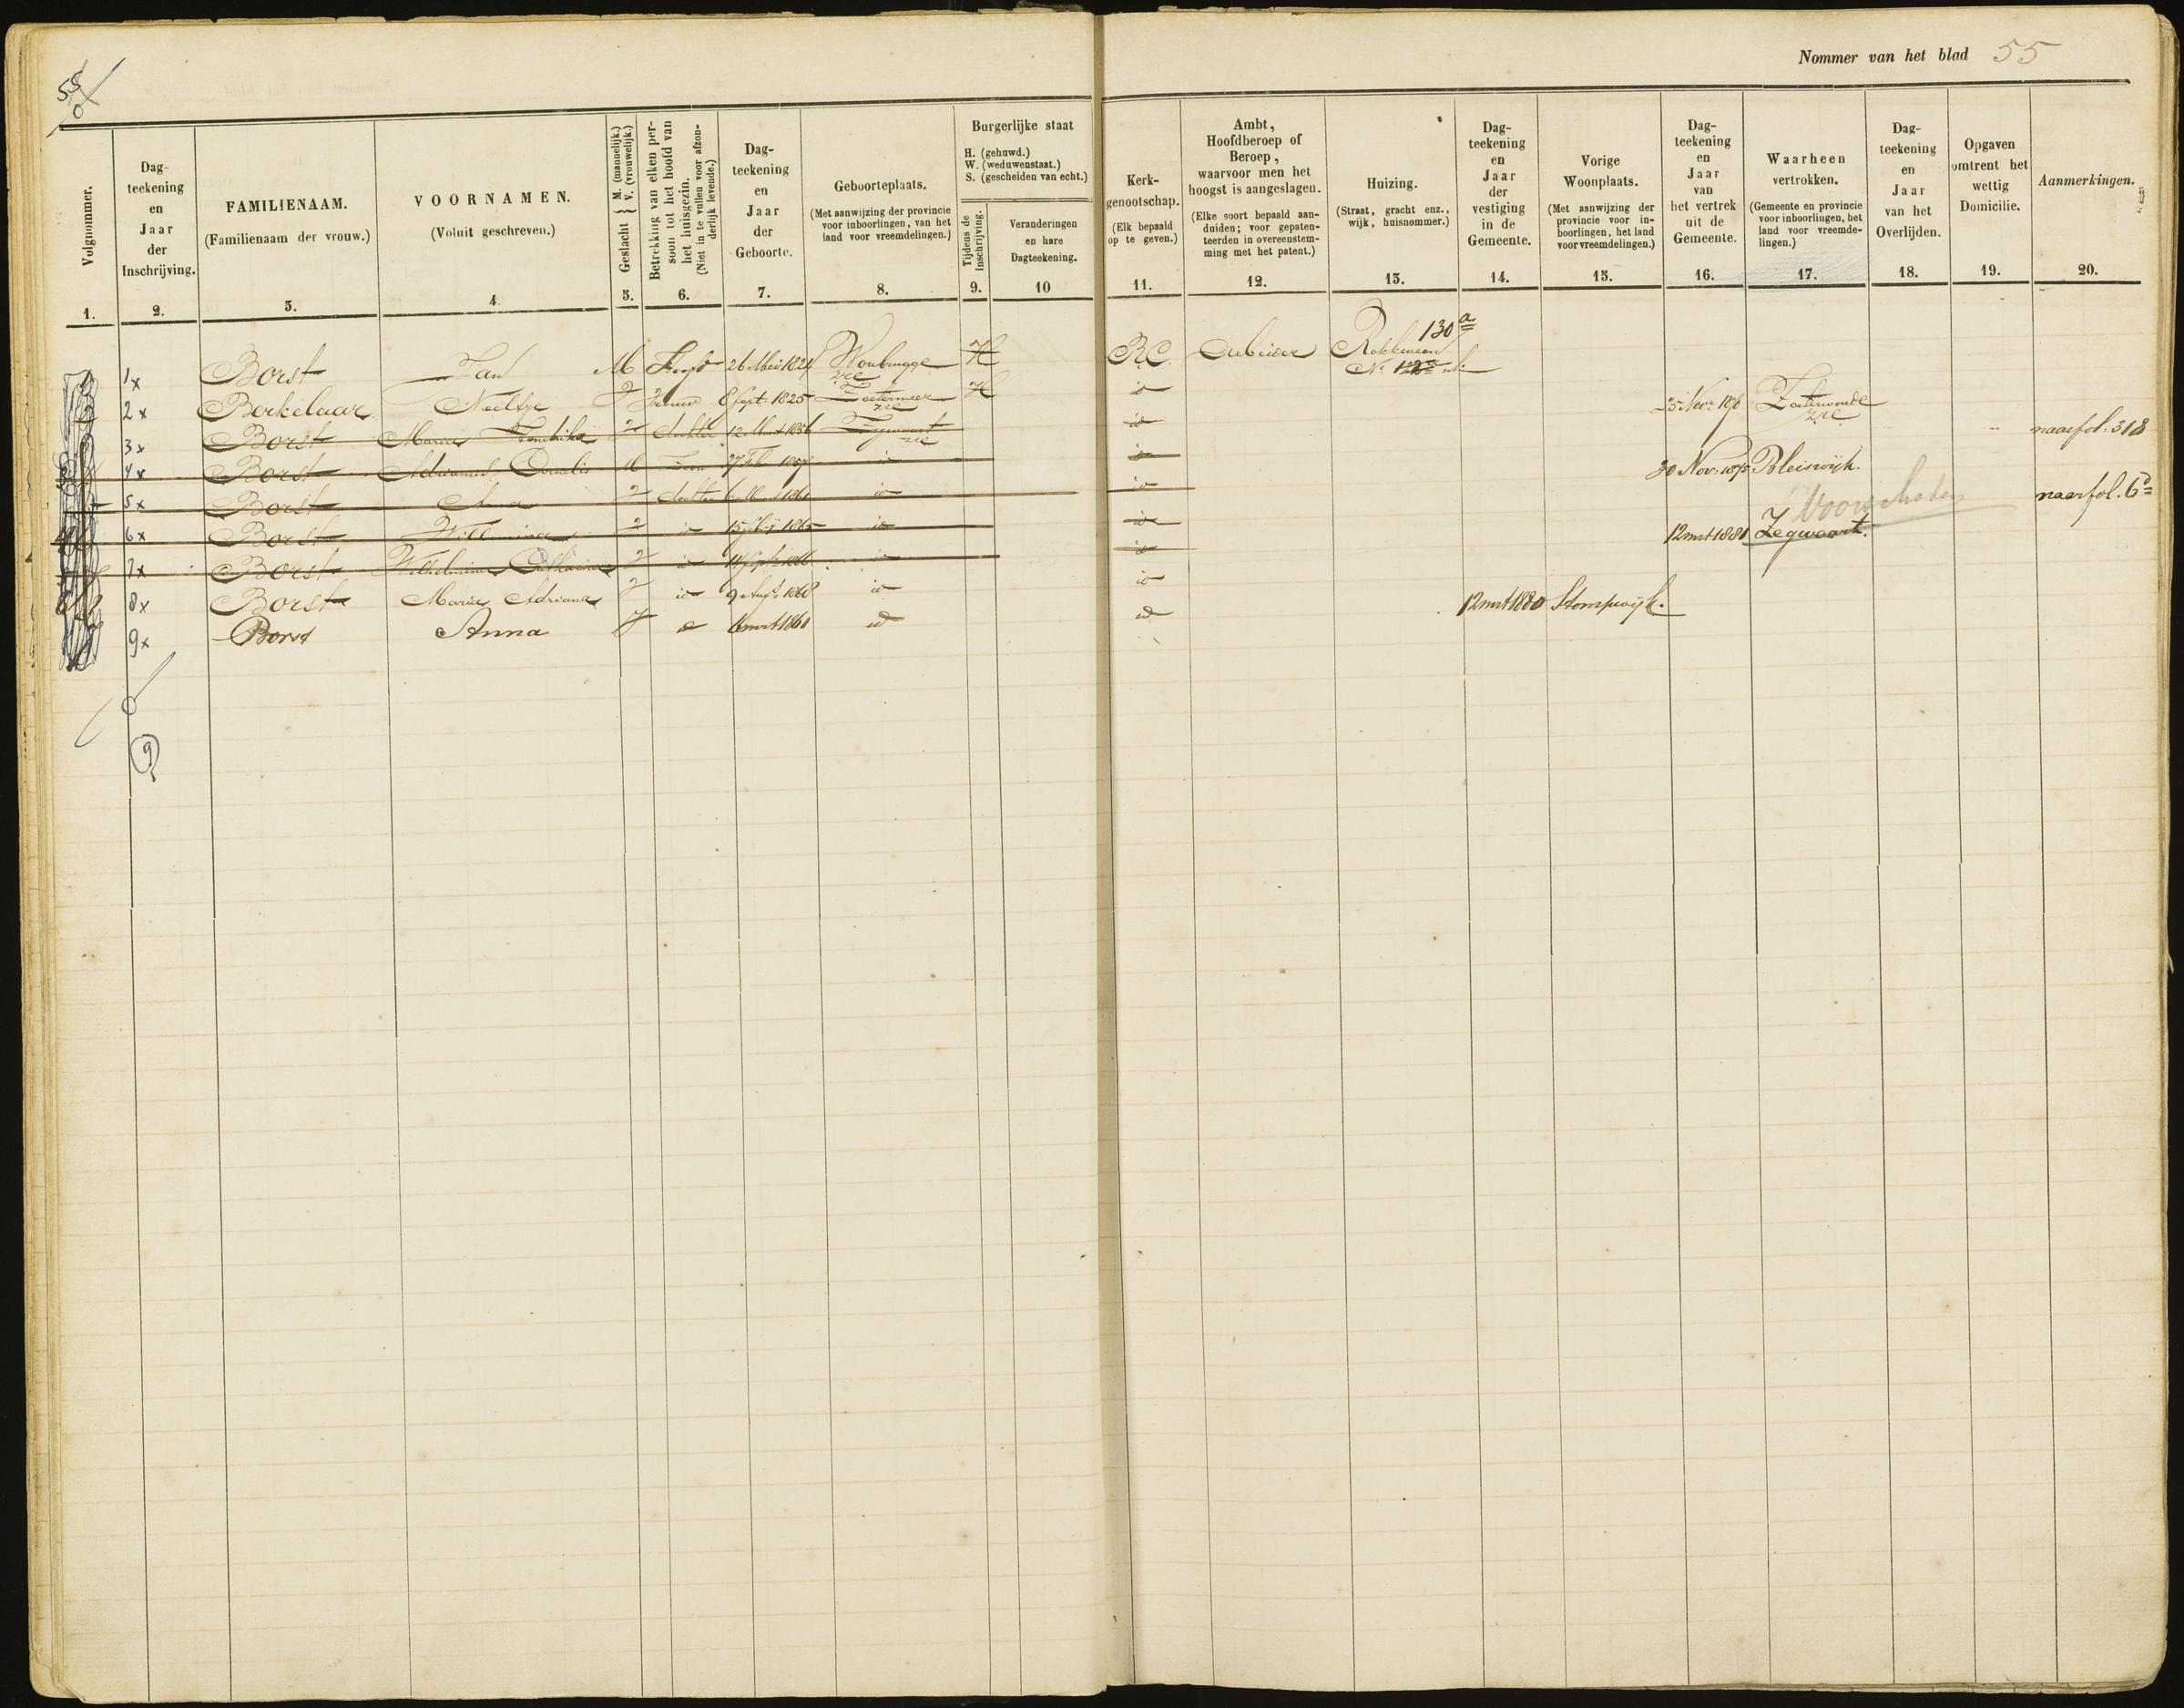 Nommer van het blad 55
55
Volgnommer.
1.
Dag-
teekening
en
Jaar
der
Inschrijving.
2.
FAMILIENAAM.
(Familienaam der vrouw.)
3.
VOORNAMEN.
(Voluit geschreven.)
4.
Geslacht { M. (mannelijk.) V. (vrouwelijk.)
5.
Betrekking van elken per-
soon tot het hoofd van
het huisgezin.
(Niet in te vullen voor afzon-
derlijk levende.)
6.
Dag-
teekening
en
Jaar
der
Geboorte.
7.
Geboorteplaats.
(Met aanwijzing der provincie
voor inboorlingen, van het
land voor vreemdelingen.)
8.
Burgerlijke staat
H. (gehuwd.)
W. (weduwenstaat.)
S. (gescheiden van echt.)
Tijdens de
Inschrijving.
9.
Veranderingen
en hare
Dagteekening.
10
Kerk-
genootschap.
(Elk bepaald
op te geven.)
11.
Ambt,
Hoofdberoep of
Beroep,
waarvoor men het
hoogst is aangeslagen.
(Elke soort bepaald aan-
duiden; voor gepaten-
teerden in overeenstem-
ming met het patent.)
12.
Huizing.
(Straat, gracht enz.,
wijk, huisnommer.)
13.
Dag-
teekening
en
Jaar
der
vestiging
in de
Gemeente.
14.
Vorige
Woonplaats.
(Met aanwijzing der
provincie voor in-
boorlingen, het land
voor vreemdelingen.)
15.
Dag-
teekening
en
Jaar
van
het vertrek
uit de
Gemeente.
16.
Waarheen
vertrokken.
(Gemeente en provincie
voor inboorlingen, het
land voor vreemde-
lingen.)
17.
Dag-
teekening
en
Jaar
van het
Overlijden.
18.
Opgaven
omtrent het
wettig
Domicilie.
19.
Aanmerkingen.
20.
130a
1x Borst Jan M Hoofd 26 Mei 1824 Woubrugge H R.C. Arbeider
ZH
2x Berkelaar Neeltje V Vrouw 8 Sept 1825 Zoetermeer H id 25 Nov: Zoeterwoude
ZH ZH
3x Borst Maria V dochter 12 Zegwaart id naar fol. 318
ZH
4x Borst Adrianus Cornelis M Zoon 27 id id 30 Nov: 1875 Bleiswijk.
5x Borst V dochter id id naar fol. 6d
Voorschoten
6x Borst V id 15 1865 id id 12 mrt 1880 Zegwaart.
7x Borst Wilhelmina V id id id
8x Borst Maria Adriana V id 9 Augt 1868 id id
9x Borst Anna V id 6 mrt 1861 id id 12 mrt 1880 Stompwijk.
9